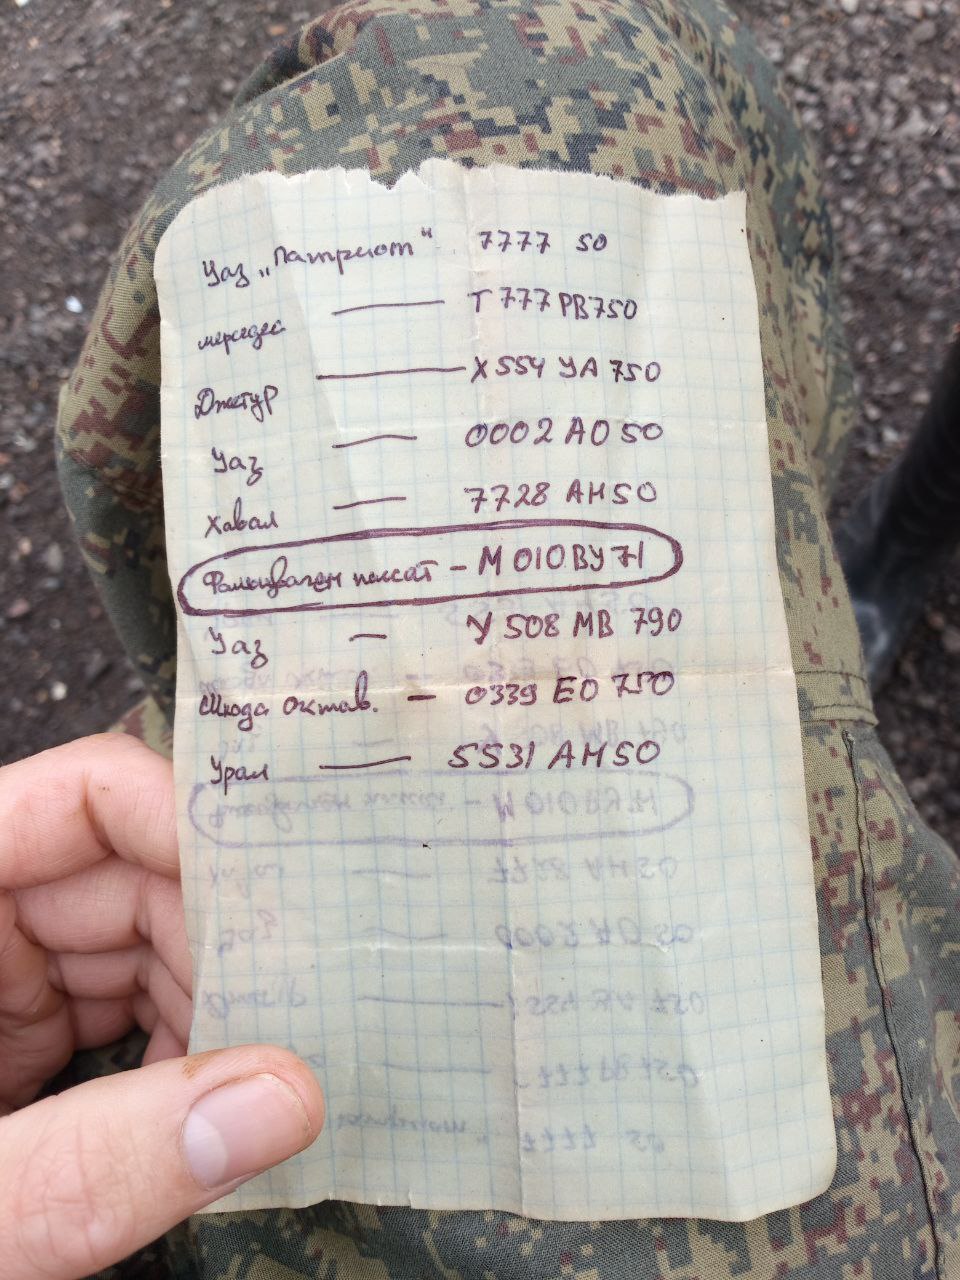 Уаз „Патриот“ 7777 50
мерседес — Т 777 РВ 750
Джетур — Х 554 УА 750
Уаз — 0002 АО 50
Хавал — 7728 АН 50
Фольцваген пассат – М 010 ВУ 71
Уаз – У 508 МВ 790
Шкода Октав. – 0339 ЕО 750
Урал — 5531 АН 50